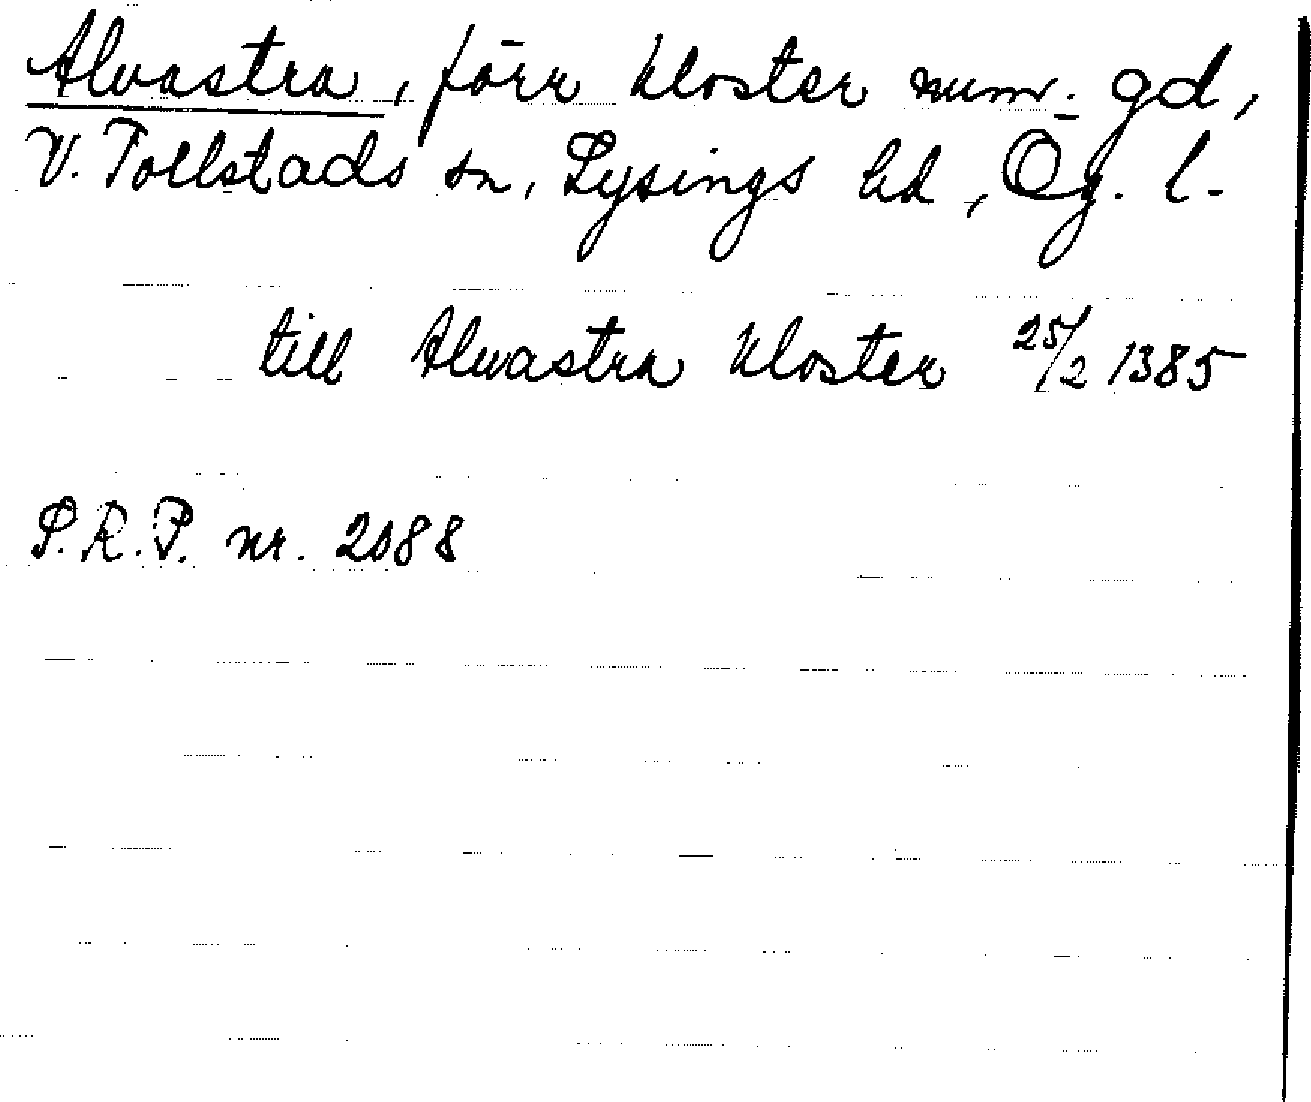 Alvastra, förr kloster num. gd,
V. Tollstads sn, Lysings hd, Ög. l.
till Alvastra kloster 25/2 1385
P.R.P. nr. 2088